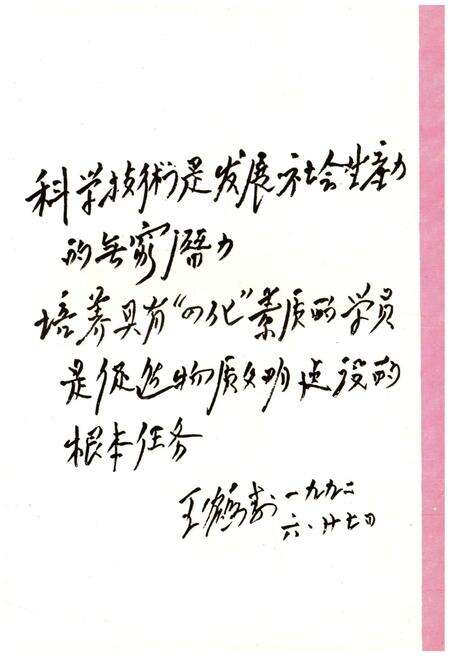 科学技術是发展社会生产力
的无穷潜力
培养具有“四化”素质的学员
是促进物质文明建设的
根本任务
王鹤寿 一九九二
六·廿七日